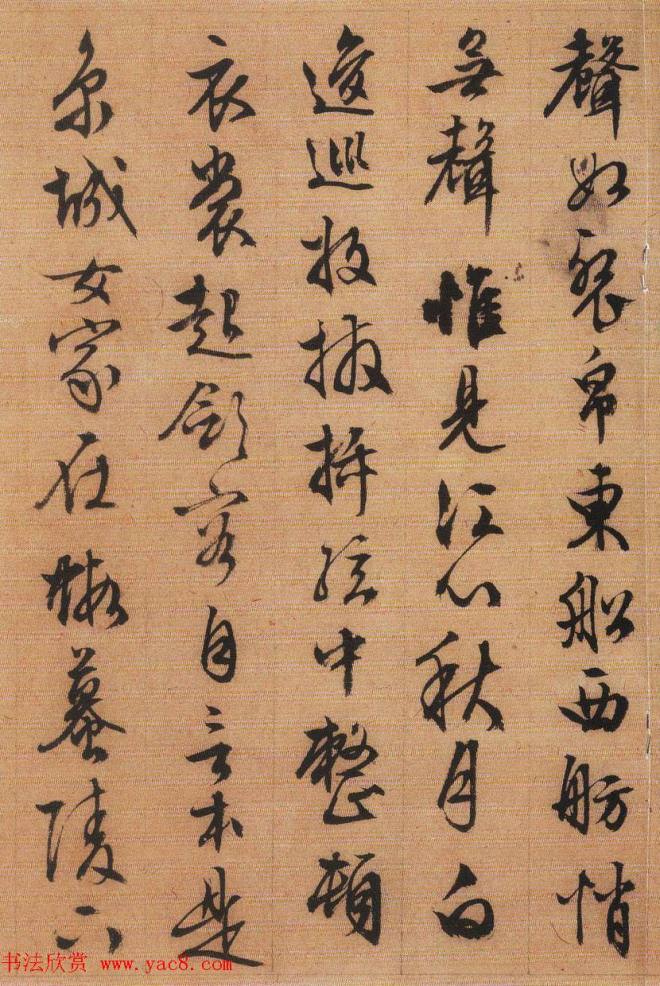 聲如裂帛東船西舫悄
無聲惟見江心秋月白
逡巡放撥插絃中整頓
衣裳起斂容自言本是
京城女家在蝦蟇陵下
书法欣赏 www.yac8.com